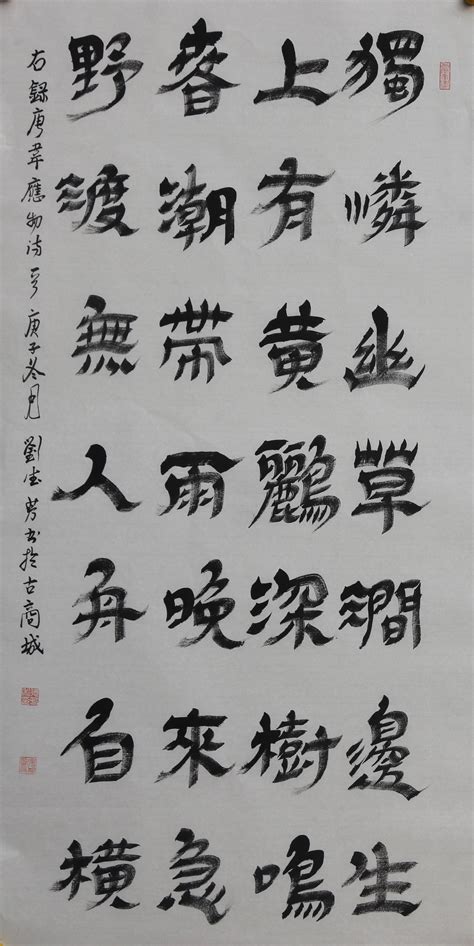 獨憐幽草澗邊生
上有黄鸝深樹鳴
春潮帶雨晚來急
野渡無人舟自橫
右錄唐韋應物诗 庚子冬月 劉芳书於古商城